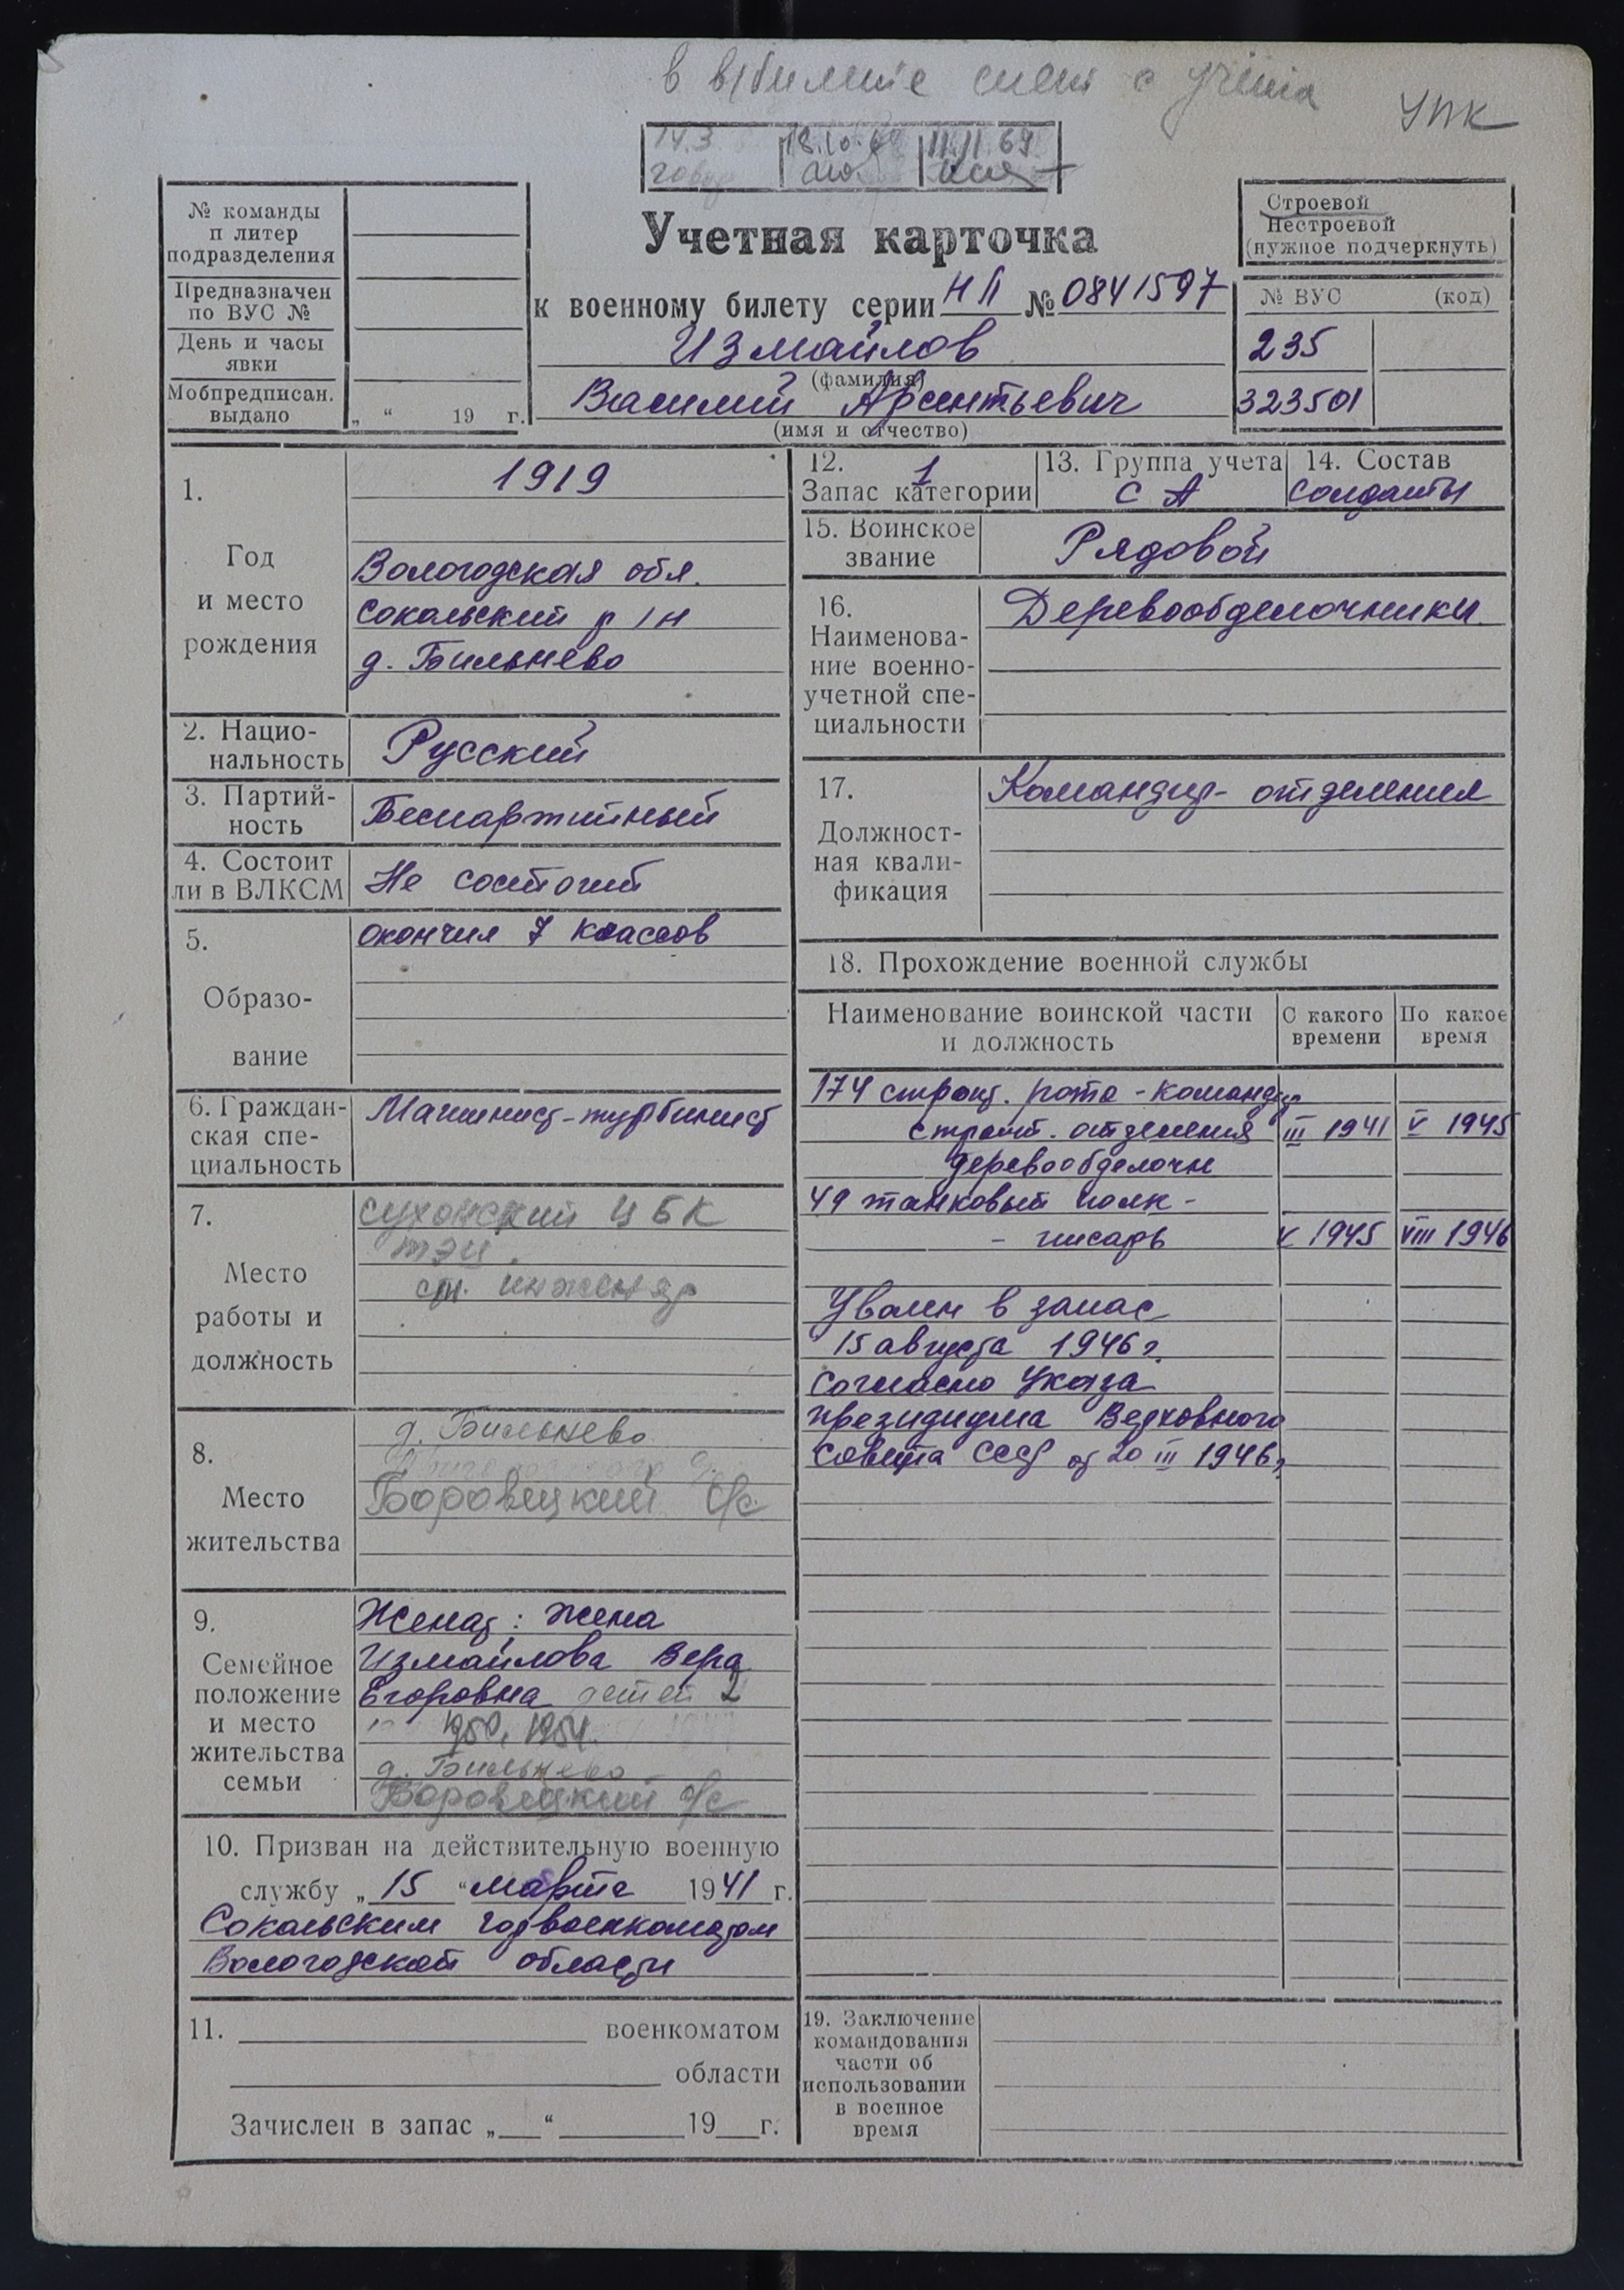 снят с учета
УПК
14.3
18.10.6
11.11.69
№ команды
и литер
подразделения
Предназначен
по ВУС №
День и часы
явки
Мобпредписан.
выдано „ “ 19 г.
Учетная карточка
к военному билету серии НП № 0841597
Измайлов
(фамилия)
Василий Арсентьевич
(имя и отчество)
Строевой
Нестроевой
(нужное подчеркнуть)
№ ВУС (код)
235
323501
1.
Год
и место
рождения
1919
Вологодская обл.
Сокольский р/н
д. Бильнево
2. Нацио-
нальность
Русский
3. Партий-
ность
Беспартийный
4. Состоит
ли в ВЛКСМ
Не состоит
5.
Образо-
вание
окончил 7 классов
6. Граждан-
ская спе-
циальность
Машинист-турбинист
7.
Место
работы и
должность
Сухонский ЦБК
ТЭЦ.
ст. инженер
8.
Место
жительства
д. Бильнево
Боровецкий с/с
9.
Семейное
положение
и место
жительства
семьи
Женат; жена
Измайлова Вера
Егоровна детей 2
1950, 1954.
д. Бильнево
Боровецкий с/с
10. Призван на действительную военную
службу „ 15 “ марта 1941 г.
Сокольским горвоенкоматом
Вологодской области
11. военкоматом
области
Зачислен в запас „ “ 19 г.
12. 1
Запас категории
13. Группа учета
СА
14. Состав
Солдаты
15. Воинское
звание
Рядовой
16.
Наименова-
ние военно-
учетной спе-
циальности
Деревообделочники
17.
Должност-
ная квали-
фикация
Командир-отделения
18. Прохождение военной службы
Наименование воинской части
и должность
С какого
времени
По какое
время
174 строит. рота - командир
строит. отделения III 1941 V 1945
деревообделочн
49 танковый полк -
- писарь V 1945 VIII 1946
Уволен в запас
15 августа 1946 г.
Согласно Указа
президиума Верховного
Совета СССР от 20 III 1946 г.
19. Заключение
командования
части об
использовании
в военное
время